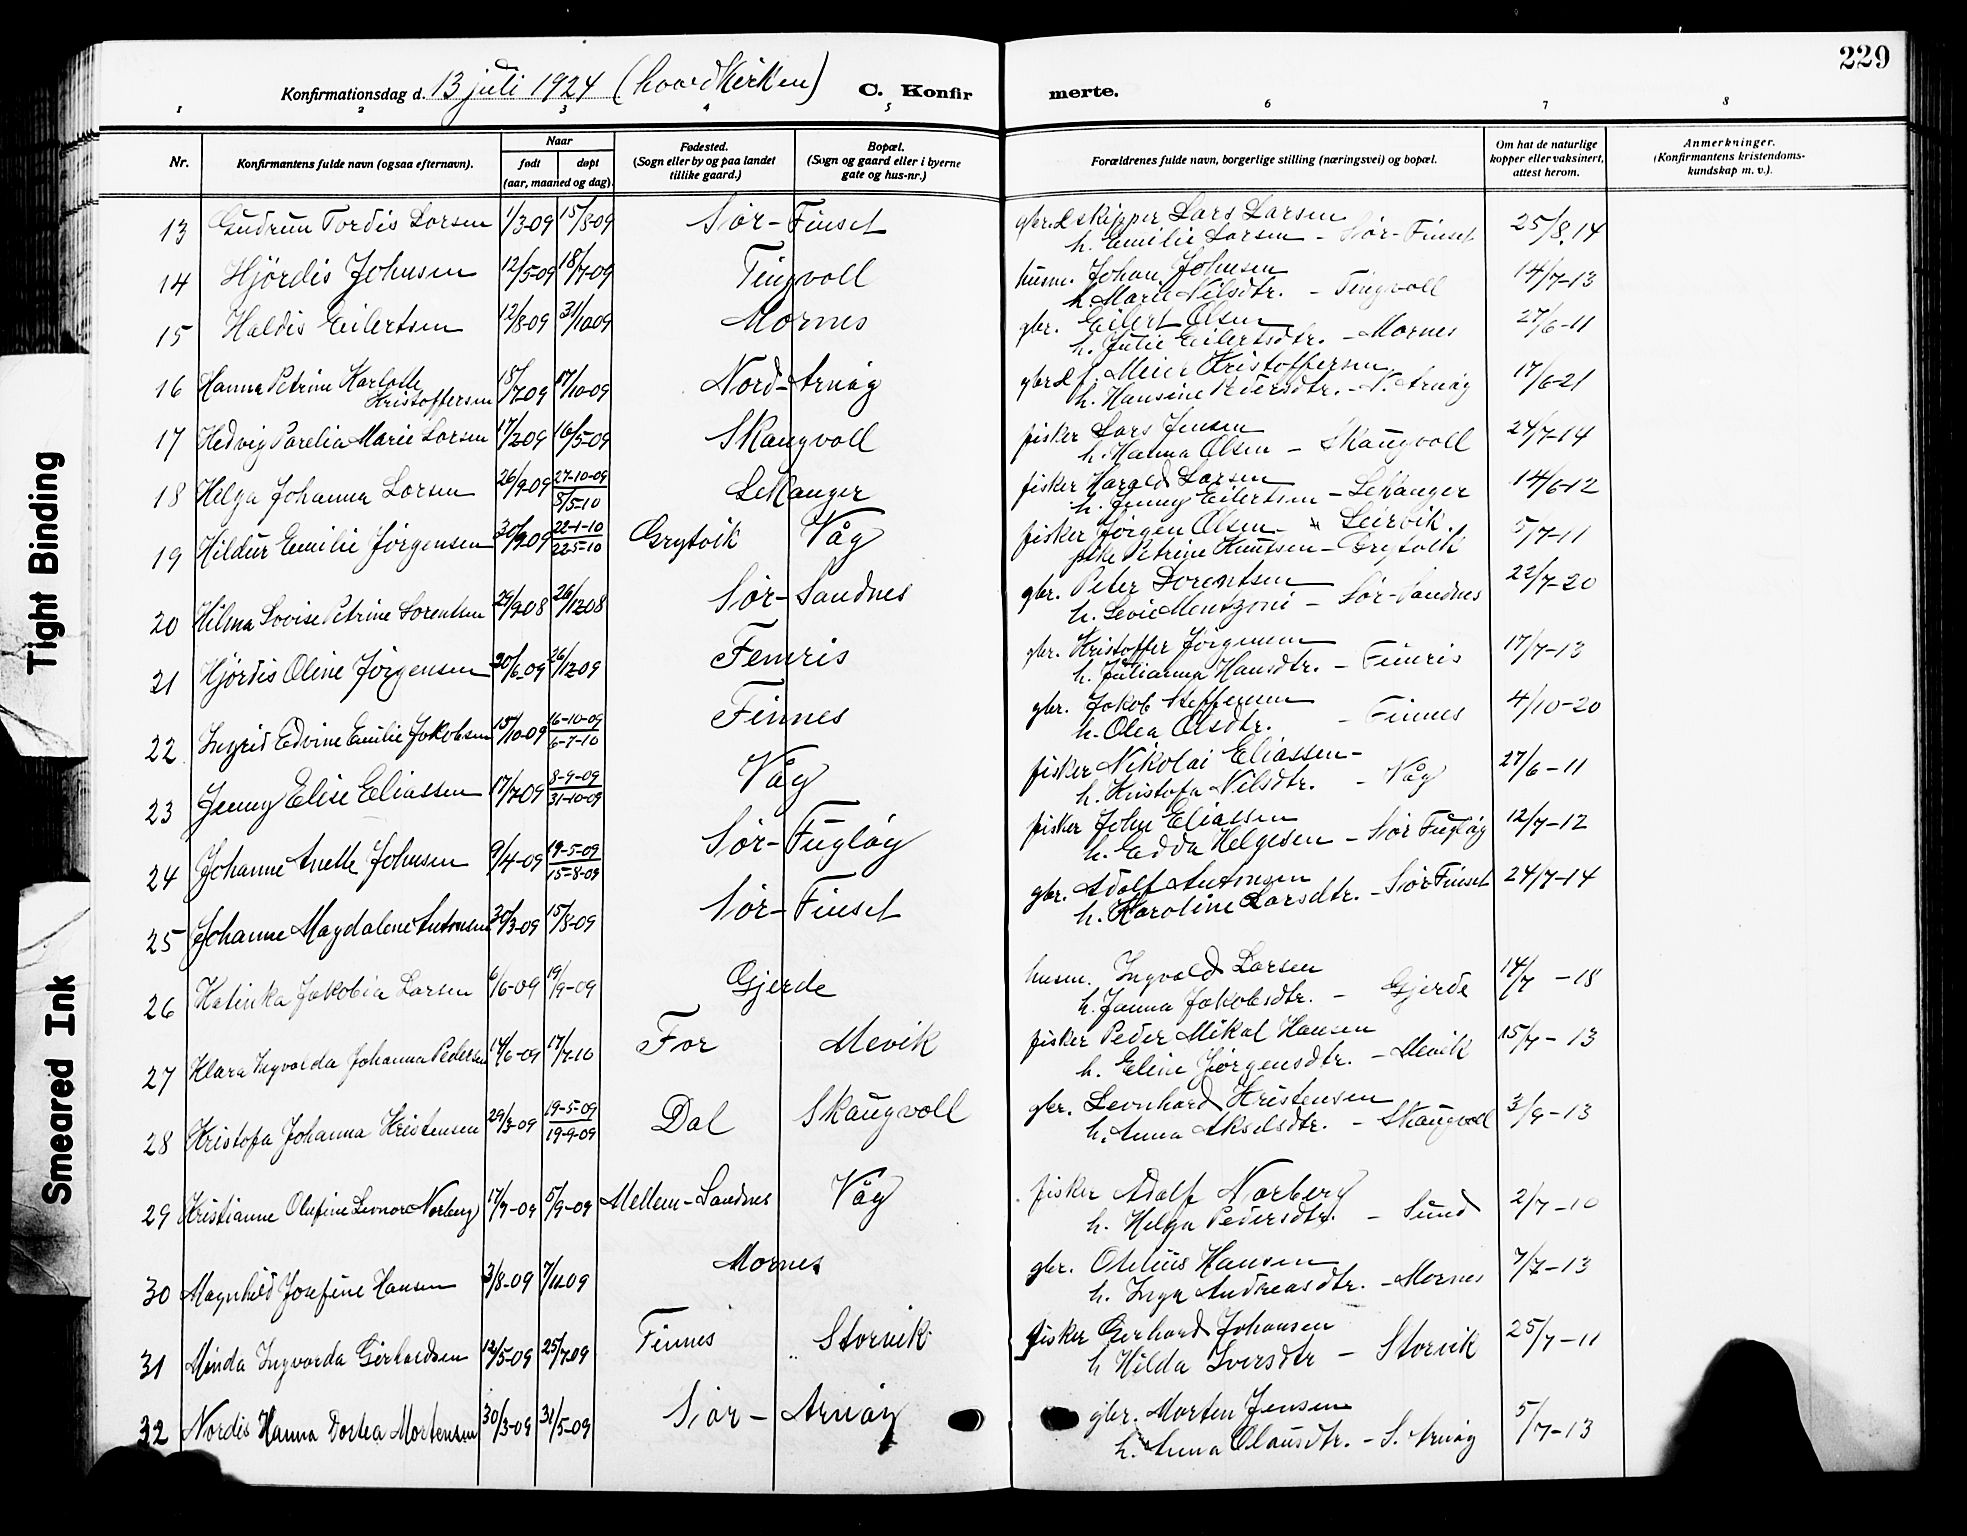 229
Konfirmationsdag d. 13 juli 1924 (hovedkirken) C. Konfirmerte.
1 2 3 4 5 6 7 8
Nr. Konfirmantens fulde navn (ogsaa efternavn). Naar født døpt (aar, maaned og dag). Fødested. (Sogn eller by og paa landet tillike gaard.) Bopæl. (Sogn og gaard eller i byerne gate og hus-nr.) Forældrenes fulde navn, borgerlige stilling (næringsvei) og bopæl. Om hat de naturlige kopper eller vaksinert, attest herom. Anmerkninger. (Konfirmantens kristendoms-kundskap m. v.).
13 Gudrun Tordis Larsen 1/3-09 15/8-09 Sør-Finset gbr. & skipper Lars Larsen 25/8.14
h. Emilie Larsen - Sør-Finset
14 Hjördis Johnsen 12/5-09 18/7-09 Tingvoll husm. Johan Johnsen 14/7-13
h. Marie Nilsdtr. - Tingvoll
15 Haldis Eilertsen 12/8-09 31/10 09 Mornes gbr. Eilert Olsen 27/6-11
h. Julie Eilertsdtr. - Mornes
16 Hanna Petrine Karlotte 15/7 09 17/10-09 Nord-Arnøy gbr. & f. Meier Kristoffersen 17/6-21
Kristoffersen h. Hansine Pedersdtr. - N. Arnøy
17 Hedvig Parelia Marie Larsen 17/2 09 16/5-09 Skaugvoll fisker Lars Jensen 24/7-14
h. Hanna Olsen - Skaugvoll
18 Helga Johanna Larsen 26/9-09 27-10-09 8/5-10 Lekanger fisker Harald Larsen 14/6-12
h. Jenny Eilertsen - Lekanger
19 Hildur Emilie Jørgensen 30/9-09 22-1-10 22 5-10 Grytvik Våg fisker Jørgen Olsen - Leirvik. 5/7-11
pike Petrine Knutsen - Grytvik
20 Hilma Lovise Petrine Lorentsen 29/9 08 26/12 08 Sør-Sandnes gbr. Peter Lorentsen 22/7-20
h. Levie Mentzoni - Sør-Sandnes
21 Hjördis Oline Jørgensen 20/6-09 26/12 09 Femris gbr. Kristoffer Jørgensen 17/7-13
h. Julianna Hansdtr. - Femris
22 Ingrid Edvine Emilie Jakobsen 15/10-09 16-10-09 6-7-10 Finnes gbr. Jakob Steffensen 4/10-20
h. Olea Olsdtr. - Finnes
23 Jenny Elise Eliassen 17/7 09 8-9-09 31-10-09 Våg fisker Nikolai Eliassen - 27/6-11
h. Kristofa Nilsdtr. - Våg
24 Johanne Anette Johnsen 9/4-09 19-5-09 15-8-09 Sør-Fugløy fisker John Eliassen 12/7-12
h. Edda Helgesen - Sør Fugløy
25 Johanne Magdalene Antonsen 30/3-09 15/8-09 Sør-Finset gbr. Adolf Antonsen 24/7-14
h. Karoline Larsdtr. - Sør Finset
26 Katinka Jakobia Larsen 6/6-09 19/9-09 Gjerde husm. Ingvald Larsen 14/7-18
h. Janna Jakobsdtr. - Gjerde
27 Klara Ingvarda Johanna Pedersen 14/6-09 17/7-10 For Mevik fisker Peder Mikal Hansen 15/7-13
h. Eline Jørgensdtr. - Mevik
28 Kristofa Johanna Kristensen 29/3-09 19-5-09 19-9-09 Dal Skaugvoll gbr. Leonhard Kristensen 3/9-13
h. Anna Akselsdtr. - Skaugvoll
29 Kristianne Olufine Leonore Norberg 17/7-09 5/9-09 Mellem-Sandnes Våg fisker Adolf Norberg 2/7-10
h. Helga Pedersdtr. - Sund
30 Magnhild Josefine Hansen 3/8-09 7/11 09 Mornes gbr. Otelius Hansen 7/7-13
h. Inga Andreasdtr. - Mornes
31 Minda Ingvarda Gerhardsen 12/5-09 25/7 09 Finnes Storvik fisker Gerhard Johansen 25/7-11
h Hilda Iversdtr - Storvik
32 Nordis Hanna Dortea Mortensen 30/3-09 31/5-09 Sør-Arnøy gbr. Morten Jensen 5/7-13
h. Anna Olausdtr. - S. Arnøy
Tight Binding
Smeared Ink